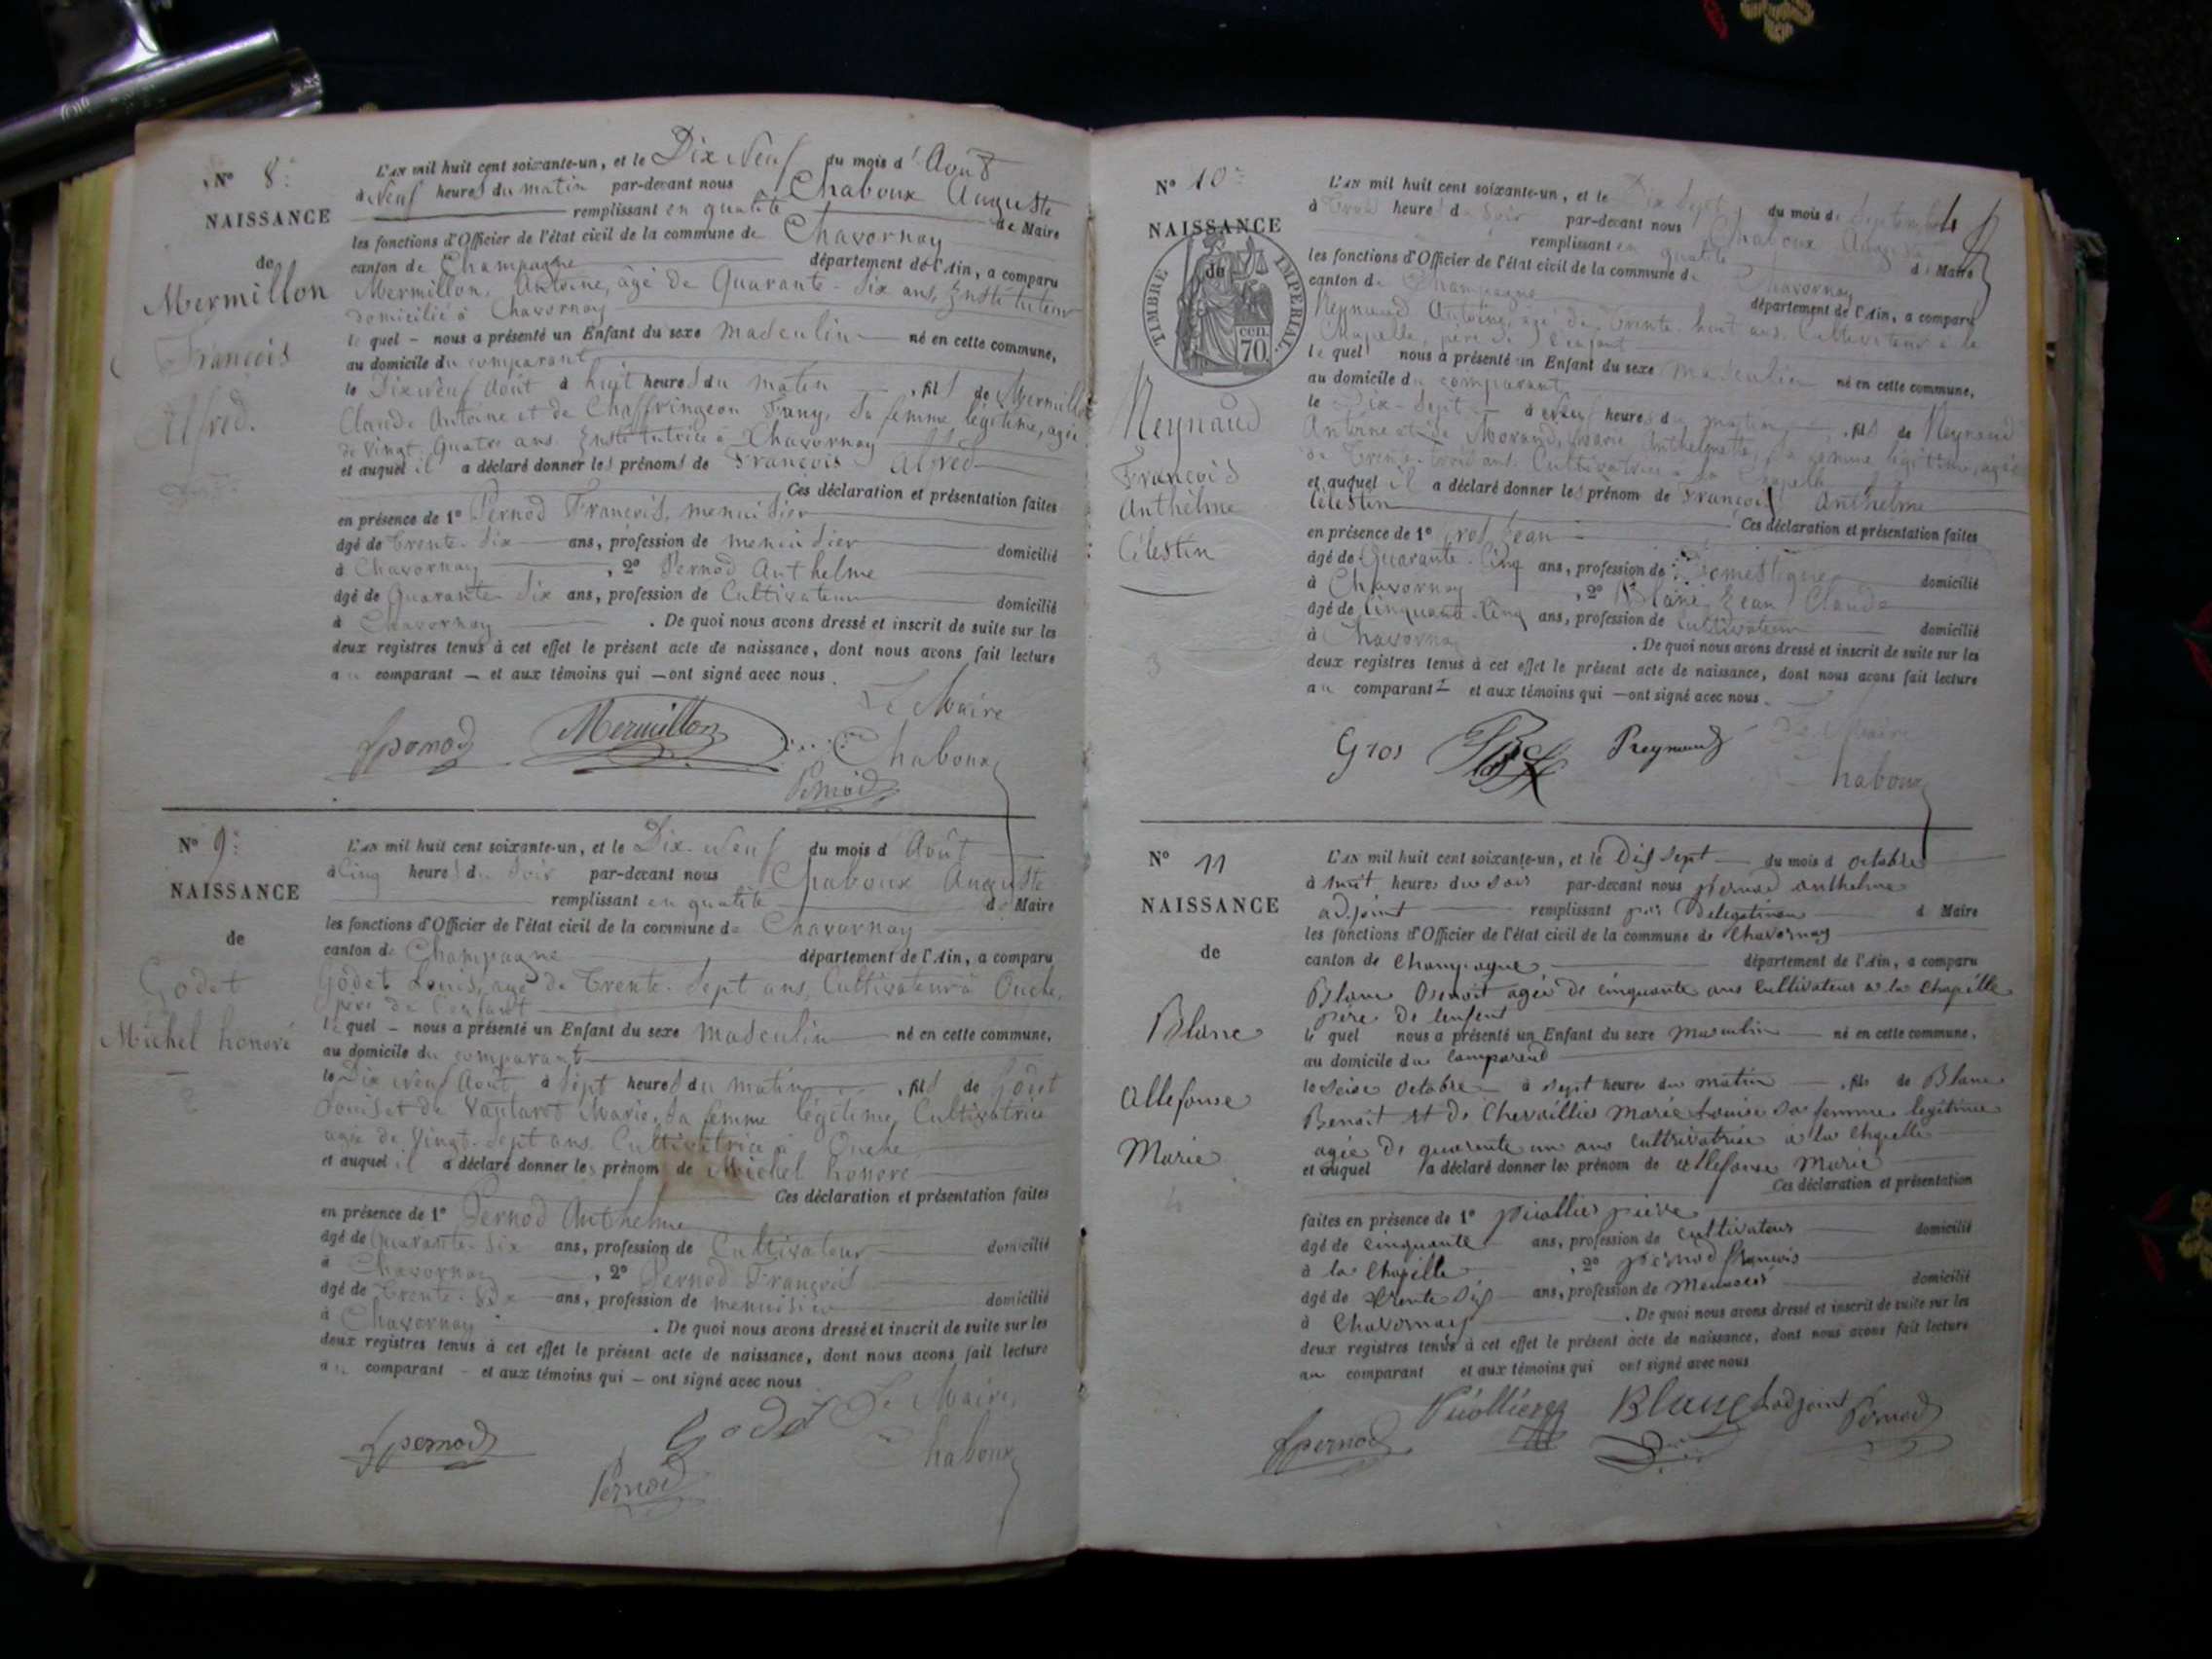 N° 8:
NAISSANCE
de
Mermillon
François
Alfred.
L'AN mil huit cent soixante-un, et le Dix Neuf du mois d' Août
à Neuf heures du matin par-devant nous Chaboux Auguste
remplissant en qualité de Maire
les fonctions d'Officier de l'état civil de la commune de Chavornay
canton de Champagne département de l'Ain, a comparu
Mermillon, Antoine, âgé de Quarante-Six ans, Instituteur
domicilié à Chavornay
le quel – nous a présenté un Enfant du sexe masculin né en cette commune,
au domicile du comparant
le Dix neuf Août à huit heures du matin , fils de Mermillon
Claude Antoine et de Chaffringeon Fany, Sa femme légitime, agée
de Vingt-Quatre ans. Institutrice à Chavornay
et auquel il a déclaré donner les prénoms de François Alfred
Ces déclaration et présentation faites
en présence de 1° Pernod François, menuisier
âgé de Trente-Six ans, profession de menuisier domicilié
à Chavornay , 2° Pernod Anthelme
âgé de Quarante Six ans, profession de Cultivateur domicilié
à Chavornay . De quoi nous avons dressé et inscrit de suite sur les
deux registres tenus à cet effet le présent acte de naissance, dont nous avons fait lecture
au comparant – et aux témoins qui – ont signé avec nous.
Le Maire
fpernod Mermillon Chaboux
Pernod
N° 9:
NAISSANCE
de
Godet
Michel honoré
L'AN mil huit cent soixante-un, et le Dix-Neuf du mois d Août
à Cinq heures du Soir par-devant nous Chaboux Auguste
remplissant en qualité de Maire
les fonctions d'Officier de l'état civil de la commune de Chavornay
canton de Champagne département de l'Ain, a comparu
Godet Louis, agé de Trente-Sept ans, Cultivateur à Ouche,
père de l'enfant
le quel – nous a présenté un Enfant du sexe masculin né en cette commune,
au domicile du comparant
le Dix Neuf Août à Sept heures du matin , fils de Godet
Louis et de Marie, Sa femme légitime, Cultivatrice
agée de Vingt-Sept ans. Cultivatrice à Ouche
et auquel il a déclaré donner les prénom de Michel honoré
Ces déclaration et présentation faites
en présence de 1° Pernod Anthelme
âgé de Quarante-Six ans, profession de Cultivateur domicilié
à Chavornay , 2° Pernod François
âgé de Trente-Six ans, profession de menuisier domicilié
à Chavornay . De quoi nous avons dressé et inscrit de suite sur les
deux registres tenus à cet effet le présent acte de naissance, dont nous avons fait lecture
au comparant – et aux témoins qui – ont signé avec nous
Le Maire,
fpernod Godet Chaboux
Pernod
N° 10:
NAISSANCE
de
TIMBRE IMPERIAL
cen.
70.
Reynaud
François
Anthelme
Célestin
3
L'AN mil huit cent soixante-un, et le Dix Sept du mois de Septembre
à Trois heures du Soir par-devant nous Chaboux Auguste
remplissant en qualité de Maire
les fonctions d'Officier de l'état civil de la commune de Chavornay
canton de Champagne département de l'Ain, a comparu
Reynaud Antoine, agé de Trente-huit ans, Cultivateur à la
Chapelle, père de l'enfant
le quel nous a présenté un Enfant du sexe masculin né en cette commune,
au domicile du comparant
le Dix-Sept à Neuf heures du matin , fils de Reynaud
Antoine et de Morand, Marie Anthelmette, Sa femme légitime, agée
de Trente-trois ans. Cultivatrice à la Chapelle
et auquel il a déclaré donner les prénom de François Anthelme
Célestin
Ces déclaration et présentation faites
en présence de 1° Gros Jean
âgé de Quarante-Cinq ans, profession de Domestique domicilié
à Chavornay , 2° Blanc Jean Claude
âgé de Cinquante-Cinq ans, profession de Cultivateur domicilié
à Chavornay . De quoi nous avons dressé et inscrit de suite sur les
deux registres tenus à cet effet le présent acte de naissance, dont nous avons fait lecture
au comparant et aux témoins qui – ont signé avec nous.
Le Maire
Gros Reymaud Chaboux
N° 11
NAISSANCE
de
Blanc
Allefonse
Marie
4
L'AN mil huit cent soixante-un, et le Dix Sept du mois d octobre
à huit heures du soir par-devant nous pernod anthelme
adjoint remplissant par delegation d Maire
les fonctions d'Officier de l'état civil de la commune de Chavornay
canton de Champagne département de l'Ain, a comparu
Blanc Benoit agée de cinquante ans cultivateur a la chapelle
pere de lenfent
le quel nous a présenté un Enfant du sexe masculin né en cette commune,
au domicile du comparend
le seise octobre à sept heures du matin , fils de Blanc
Benoit et de Chevaillier Marie Louise sa femme legitime
agée de quarente un ans cultivatrice a la Chapelle
et auquel a déclaré donner les prénom de allefonse Marie
Ces déclaration et présentation
faites en présence de 1° puiollier pierre
âgé de cinquante ans, profession de cultivateur domicilié
à la Chapelle , 2° pernod francois
âgé de trente six ans, profession de Menusier domicilié
à Chavornay . De quoi nous avons dressé et inscrit de suite sur les
deux registres tenus à cet effet le présent acte de naissance, dont nous avons fait lecture
au comparant et aux témoins qui ont signé avec nous
fpernod Puiollier Blanc Ladjoint Pernod